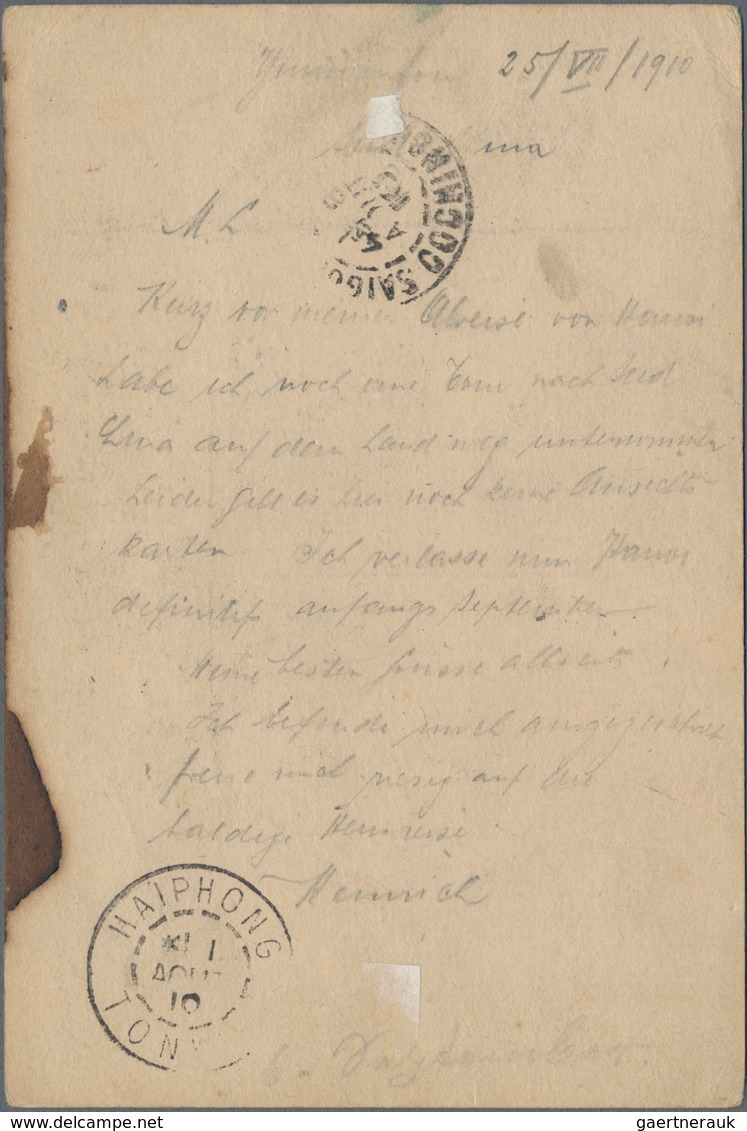 25/VII/1910
M L
SAIGON COCHINCHINE
Kurz vor meiner Abreise von Hanoi
habe ich noch eine Tour nach Süd
China auf dem Landweg unternommen
Leider gibt es hier noch keine Ansichts
karten. Ich verlasse nun Hanoi
definitif anfangs September
Meine besten Grüsse allseits.
Ich befinde mich ausgezeichnet
freue mich riesig auf die
baldige Heimreise
Heinrich
HAIPHONG
1
AOUT
10
TONKIN
gaertnerauk